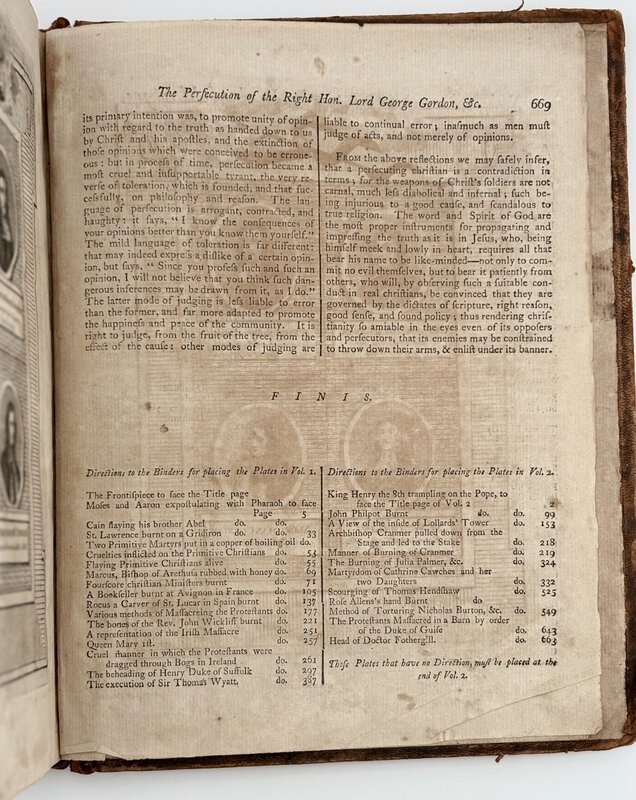 The Perſecution of the Right Hon. Lord George Gordon, &c. 669
its primary intention was, to promote unity of opin-
ion with regard to the truth as handed down to us
by Chriſt and his apoſtles, and the extinction of
thoſe opinions which were conceived to be errone-
ous: but in proceſs of time, perſecution became a
moſt cruel and inſupportable tyrant, the very re-
verſe of toleration, which is founded, and that ſuc-
ceſsfully, on philoſophy and reaſon. The lan-
guage of perſecution is arrogant, contracted, and
haughty: it ſays, "I know the conſequences of
your opinions better than you know them yourſelf."
The mild language of toleration is far different:
that may indeed expreſs a diſlike of a certain opin-
ion, but ſays, "Since you profeſs ſuch and ſuch an
opinion, I will not believe that you think ſuch dan-
gerous inferences may be drawn from it, as I do."
The latter mode of judging is leſs liable to error
than the former, and far more adapted to promote
the happineſs and peace of the community. It is
right to judge, from the fruit of the tree, from the
effect of the cauſe: other modes of judging are
liable to continual error; inaſmuch as men muſt
judge of acts, and not merely of opinions.
From the above reflections we may ſafely infer,
that a perſecuting chriſtian is a contradiction in
terms; for the weapons of Chriſt's ſoldiers are not
carnal, much leſs diabolical and infernal; ſuch be-
ing injurious to a good cauſe, and ſcandalous to
true religion. The word and Spirit of God are
the moſt proper inſtruments for propagating and
impreſſing the truth as it is in Jeſus, who, being
himſelf meek and lowly in heart, requires all that
bear his name to be like-minded—not only to com-
mit no evil themſelves, but to bear it patiently from
others, who will, by obſerving ſuch a ſuitable con-
duct in real chriſtians, be convinced that they are
governed by the dictates of ſcripture, right reaſon,
good ſenſe, and ſound policy; thus rendering chriſ-
tianity ſo amiable in the eyes even of its oppoſers
and perſecutors, that its enemies may be conſtrained
to throw down their arms, & enliſt under its banner.
F I N I S.
Directions to the Binders for placing the Plates in Vol. 1.
The Frontiſpiece to face the Title page
Moſes and Aaron expoſtulating with Pharaoh to face
Page 5
Cain ſlaying his brother Abel do. do.
St. Lawrence burnt on a Gridiron do. do. 33
Two Primitive Martyrs put in a copper of boiling oil do.
Cruelties inflicted on the Primitive Chriſtians do. 53
Flaying Primitive Chriſtians alive do. 55
Marcus, Biſhop of Arethuſa rubbed with honey do. 69
Fourſcore chriſtian Miniſters burnt do. 71
A Bookſeller burnt at Avignon in France do. 105
Rocus a Carver of St. Lucar in Spain burnt do. 137
Various methods of Maſſacreing the Proteſtants do. 177
The bones of the Rev. John Wickliff burnt do. 221
A repreſentation of the Iriſh Maſſacre do. 251
Queen Mary 1ſt. do. 257
Cruel manner in which the Proteſtants were
dragged through Bogs in Ireland do. 261
The beheading of Henry Duke of Suffolk do. 297
The execution of Sir Thomas Wyatt, do. 387
Directions to the Binders for placing the Plates in Vol. 2.
King Henry the 8th trampling on the Pope, to
face the Title page of Vol. 2 2
John Philpot Burnt do. do. 99
A View of the inſide of Lollards' Tower do. 153
Archbiſhop Cranmer pulled down from the
Stage and led to the Stake do. 218
Manner of Burning of Cranmer do. 219
The Burning of Julia Palmer, &c. do. 324
Martyrdom of Cathrine Cawches and her
two Daughters do. 332
Scourging of Thomas Hendſhaw do. 525
Roſe Allens's hand Burnt do
Method of Torturing Nicholas Burton, &c. do. 549
The Proteſtants Maſſacred in a Barn by order
of the Duke of Guiſe do. 643
Head of Doctor Fothergill. do. 663
Thoſe Plates that have no Direction, muſt be placed at the
end of Vol. 2.